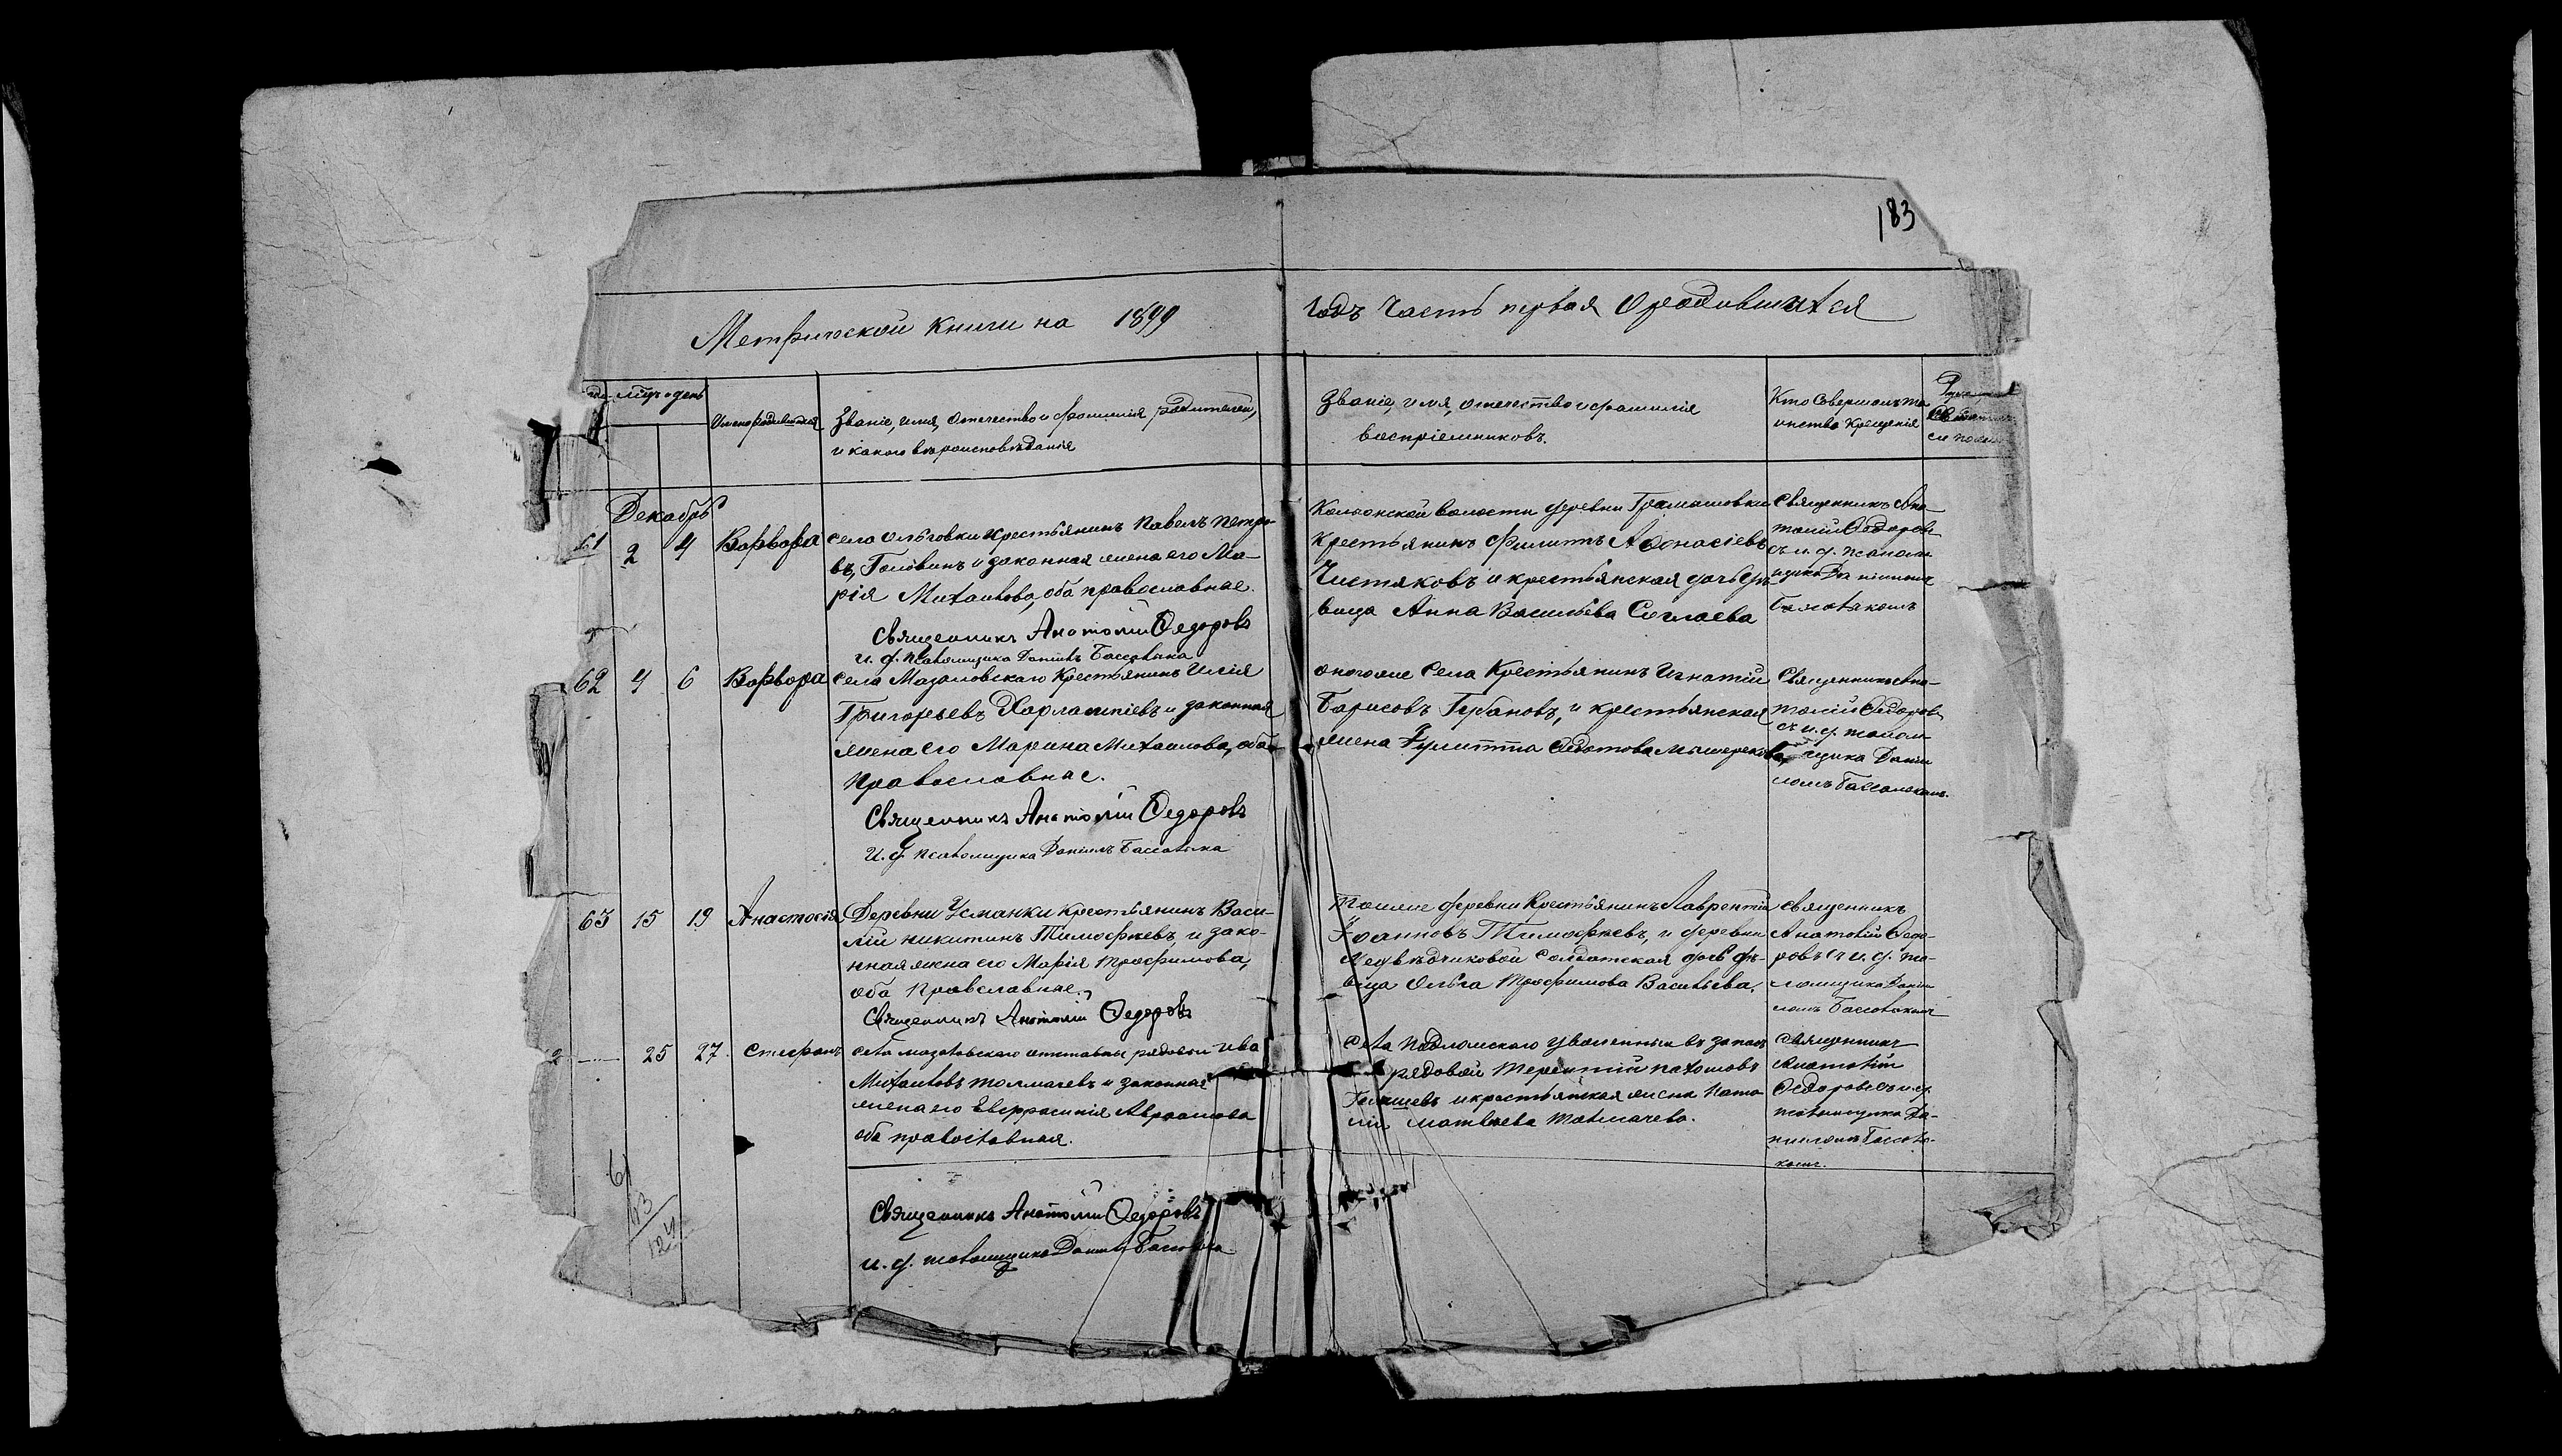 183
Метрической книги на 1899
годъ часть первая о родившихся
мѣс. и день
Имена родившихся
Званіе, имя, отчество и фамилія родителей,
и какого вѣроисповѣданія
Званіе, имя, отчество и фамилія
воспріемниковъ.
Кто совершалъ та
инство крещенія
Декабрь
61 2 4 Варвара
села Ольговки крестьянинъ Павелъ Петро-
въ, Головинъ и законная жена его Ма-
рія Михаилова, оба православные.
Священникъ Анатолій Ѳедоровъ
и. д. псаломщика Даніилъ
волости деревни
крестьянинъ Филиппъ Аѳонасіевъ
Чистяковъ и крестьянская дочь дѣ-
вица Анна Васильева
Священникъ Ана-
толій Ѳедоровъ
съ и. д. псалом
щика Даніиломъ
62 4 6 Варвара
села Мазаловскаго крестьянинъ Илія
Григорьевъ Харлампіевъ и законная
жена его Марина Михаилова, оба
православные.
Священникъ Анатолій Ѳедоровъ
И. д. псаломщика Даніилъ
онагоже села крестьянинъ Игнатій
Борисовъ и крестьянская
жена Ѳедотова
Священникъ Ана-
толій Ѳедоровъ
съ и. д. псалом
щика Даніи
ломъ
63 15 19 Анастасія
Деревни Усманки крестьянинъ Васи-
лій Никитинъ Тимофѣевъ, и зако-
нная жена его Марія Трофимова,
оба православные.
Священникъ Анатолій Ѳедоровъ
Тояже деревни крестьянинъ Лаврентій
Іоанновъ Тимофѣевъ, и деревни
Медвѣдчиковой солдатская дочь дѣ-
вица Ольга Трофимова Васильева.
священникъ
Анатолій Ѳедо-
ровъ съ и. д. пса-
ломщика Даніи
ломъ
25 27 Стефанъ
села Мазаловскаго отставный рядовой Ива
Михаиловъ Толмачевъ и законная
жена его Евфросинія Авраамова
оба православные.
Священникъ Анатолій Ѳедоровъ
и. д. псаломщика Даніилъ
села уволенный въ запасъ
рядовой Терентій Пахомовъ
и крестьянская жена Ната
лія Матвѣева Толмачева.
священникъ
Анатолій
Ѳедоровъ съ и. д.
псаломщика Да-
ніиломъ
61
63
124